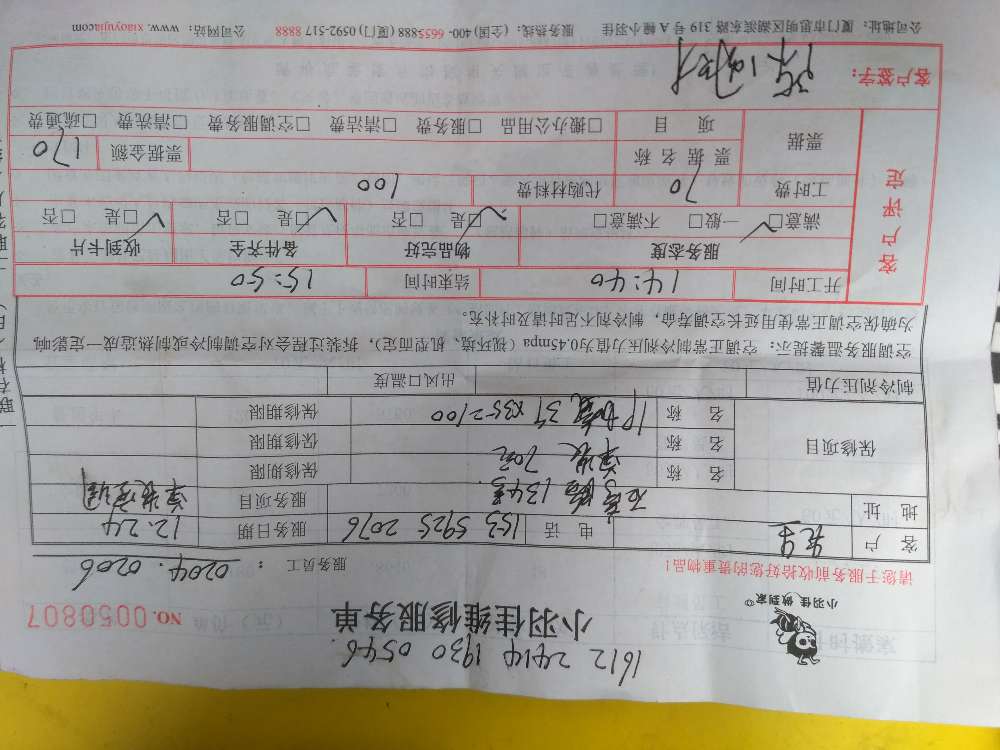 1612 2414 1930 0546
小羽佳 做到家
小羽佳维修服务单
NO. 0050807
请您于服务前收拾好您的贵重物品!
服务员工 : 0204. 0206
客 户 先生 电 话 153 5925 2076 服务日期 12.24
地 址 134号 服务项目 单装空调
保修项目
名 称 单装 70元 保修期限
名 称 保修期限
名 称 保修期限
制冷剂压力值 出风口温度
空调服务温馨提示:空调正常制冷剂压力值为0.45mpa(视环境、机型而定),拆装过程会对空调制冷或制热造成一定影响,
为确保空调正常使用延长空调寿命,制冷剂不足时请及时补充。
客户评定
开工时间 14:40 结束时间 15:50
服务态度 物品完好 备件齐全 收到卡片
满意☐ 一般☐ 不满意☐ ☐是 ☐否 ☐是 ☐否 ☐是 ☐否
工时费 70 代购材料费 100
票据 票据名称 票据金额 170
项 目 ☐搬办公用品 ☐服务费 ☐清洁费 ☐空调服务费 ☐清洗费 ☐疏通费
客户签字:
公司地址:厦门市思明区湖滨东路 319 号 A 幢小羽佳 服务热线:(全国) 400-6655888 (厦门) 0592-517 8888 公司网站:www.xiaoyujia.com